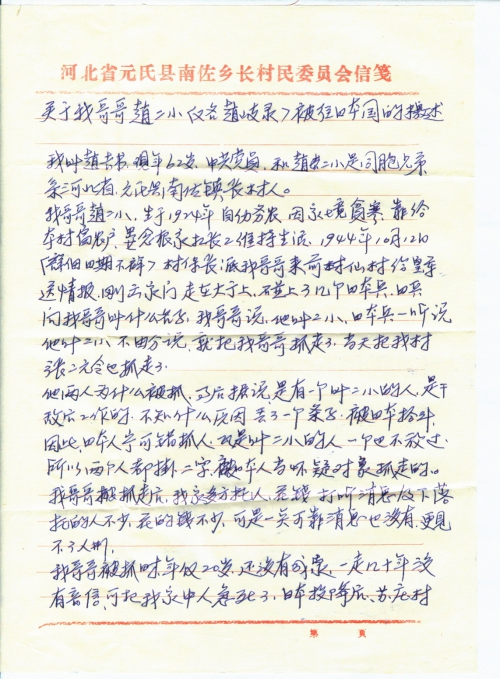 河北省元氏县南佐乡长村民委员会信笺
关于我哥哥趙二小<又名趙成录>被往日本国的概述
我叫趙吉书,现年62岁,中共党员,和趙二小是同胞兄弟
系河北省,元氏县南佐镇长村人。
我哥哥趙二小、生于1924年自幼务农,因家境貧寒,靠给
本村富农户,晏念根家扛长工维持生活,1944年10月12日
(詳细日期不詳)村保长派我哥哥来前村仙村给皇軍
送情报,刚出家门走在大于上,碰上了几个日本兵,日兵
问我哥哥叫什么名子,我哥哥说,他叫二小,日本兵一听说
他叫二小不由分说,就把我哥哥抓走了,当天把我村
張二元合也抓走了.
他两人为什么被抓,以后据说,是有一个叫二小的人,是干
敌家工作的,不知什么原因丢了一个条子,被日本拾到,
因此,日本人宁可错抓人,凡是叫二小的人一个也不放过.
所以两个人都掛二字,被日本人当怀疑对象抓走的。
我哥哥被抓走后,我家多方托人,花錢打听消息及下落
托的人不少,花的錢不少,可是一矣可靠消息也没有,更見
不了人啊,
我哥哥被抓时,年仅20岁,还没有对象,一走几十年没
有音信,可把我家中人急死了,日本投降后,苏庄村
第 頁